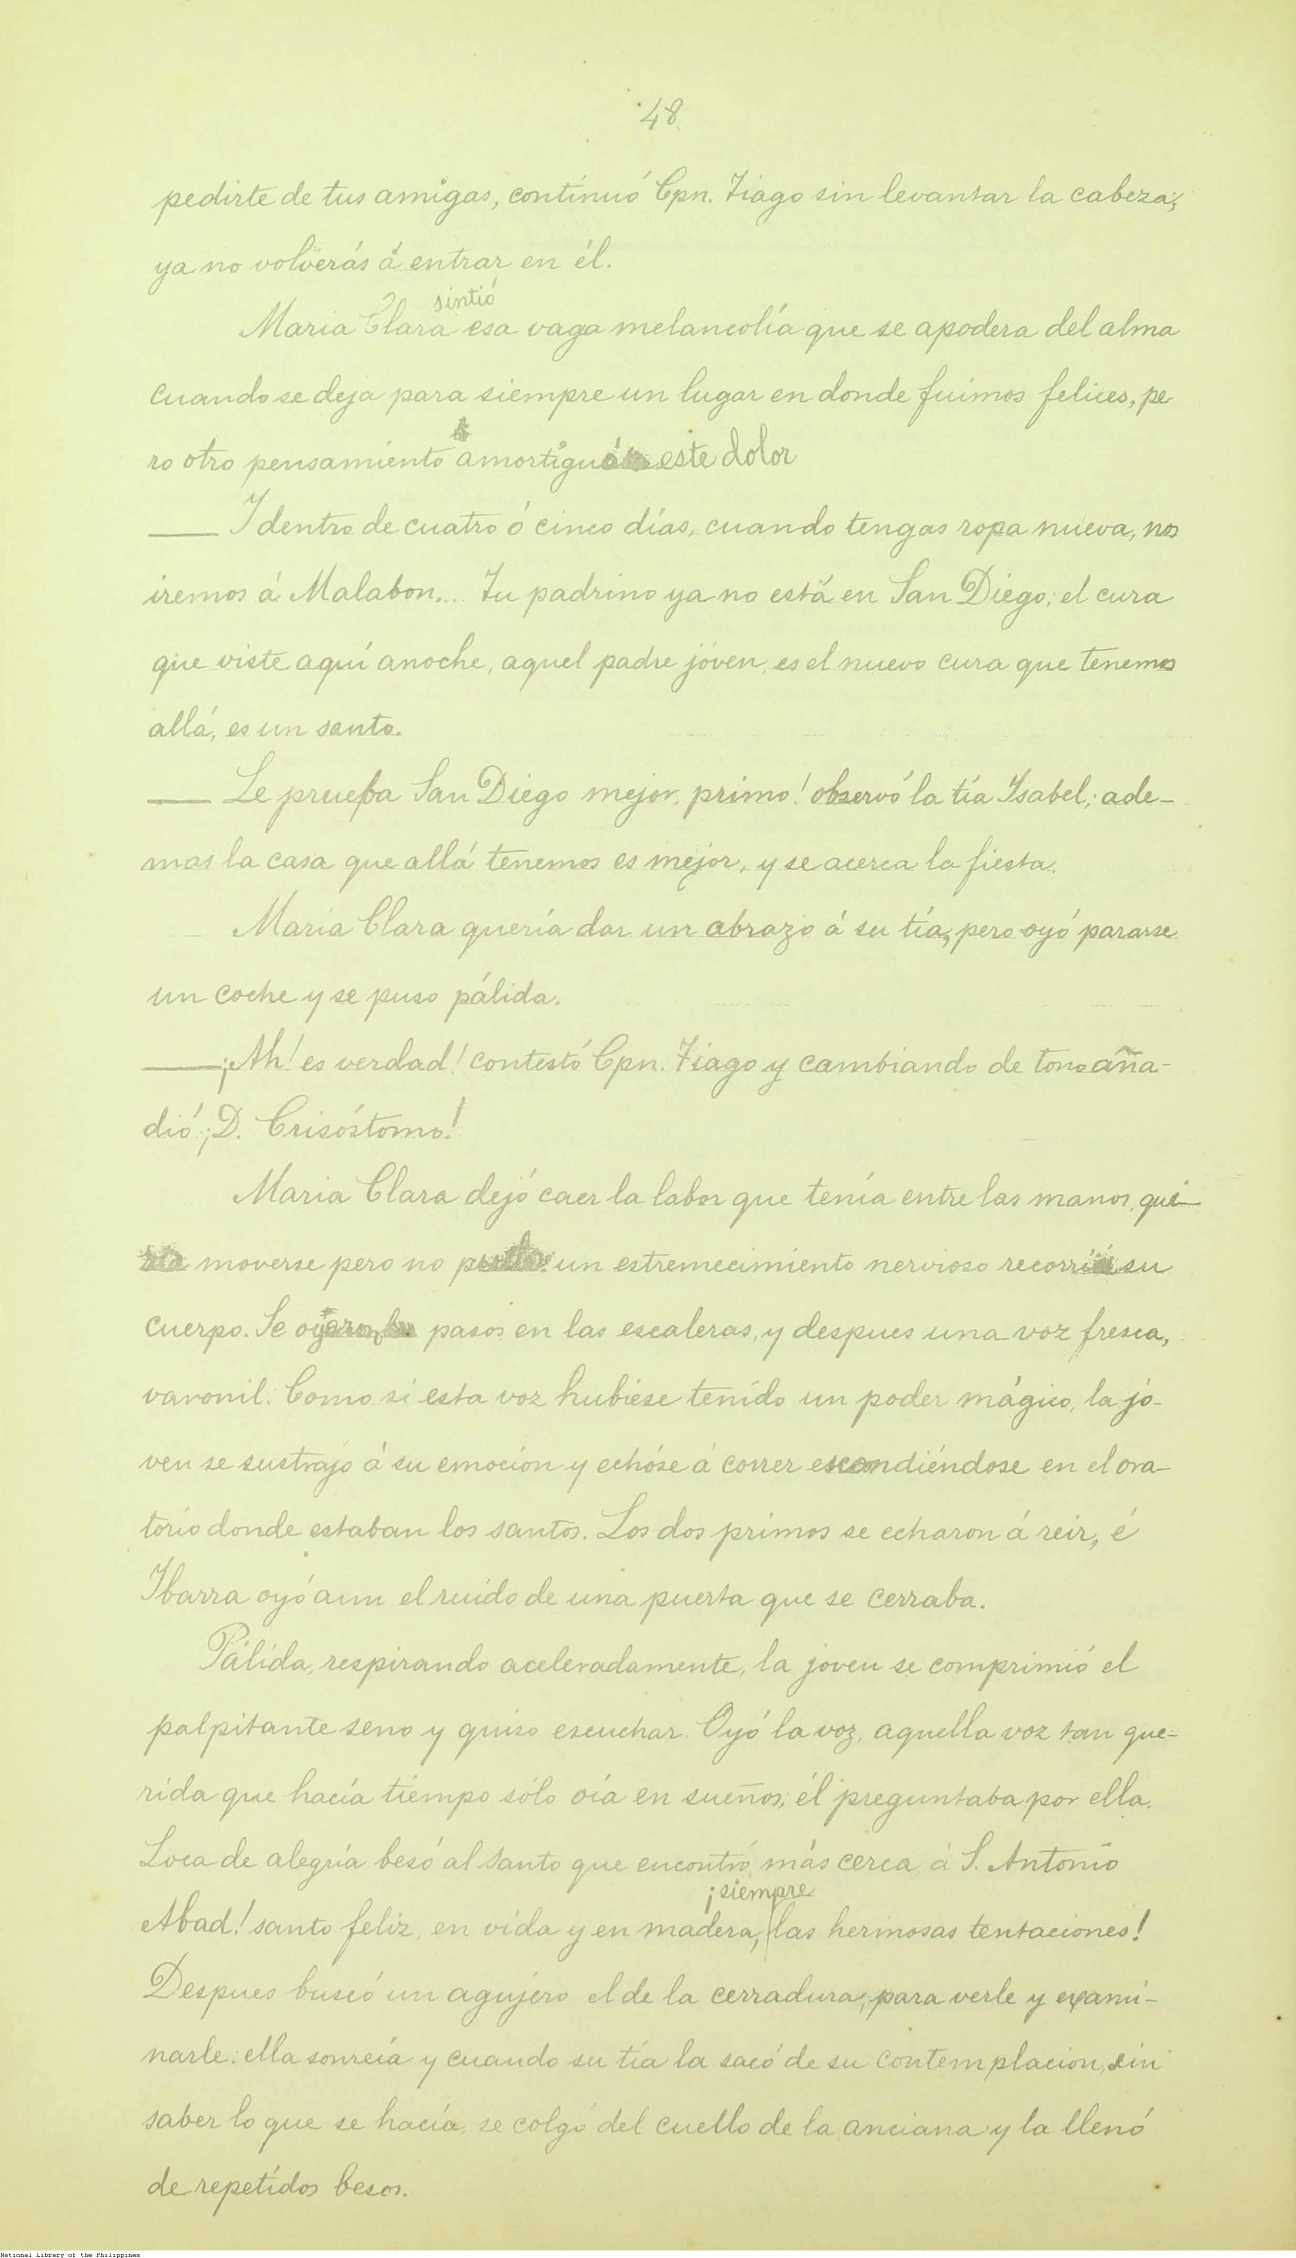 48
pedirte de tus amigas, continuó Cpn. Tiago sin levantar la cabeza;
ya no volverás á entrar en él.
sintió
Maria Clara esa vaga melancolía que se apodera del alma
cuando se deja para siempre un lugar en donde fuimos felices, pe
ro otro pensamiento amortiguó este dolor
— Y dentro de cuatro ó cinco días, cuando tengas ropa nueva, nos
iremos á Malabon... Tu padrino ya no está en San Diego; el cura
que viste aquí anoche, aquel padre jóven, es el nuevo cura que tenemos
allá, es un santo.
— Le prueba San Diego mejor, primo! observó la tía Isabel; ade-
mas la casa que allá tenemos es mejor, y se acerca la fiesta.
Maria Clara quería dar un abrazo á su tía, pero oyó pararse
un coche y se puso pálida.
— ¡Ah! es verdad! contestó Cpn. Tiago y cambiando de tono aña-
dió: ¡D. Crisóstomo!
Maria Clara dejó caer la labor que tenía entre las manos, qui
moverse pero no un estremecimiento nervioso recorrió su
cuerpo. Se oyeron pasos en las escaleras, y despues una voz fresca,
varonil. Como si esta voz hubiese tenido un poder mágico, la jó-
ven se sustrajo á su emoción y echóse á correr escondiéndose en el ora-
torio donde estaban los santos. Los dos primos se echaron á reir, é
Ibarra oyó aun el ruido de una puerta que se cerraba.
Pálida, respirando aceleradamente, la joven se comprimió el
palpitante seno y quiso escuchar. Oyó la voz, aquella voz tan que-
rida que hacía tiempo sólo oía en sueños; él preguntaba por ella.
Loca de alegría besó al santo que encontró más cerca á S. Antonio
¡siempre
Abad! santo feliz, en vida y en madera, las hermosas tentaciones!
Despues buscó un agujero el de la cerradura, para verle y exami-
narle: ella sonreía y cuando su tía la sacó de su contemplacion, sin
saber lo que se hacía se colgó del cuello de la anciana y la llenó
de repetidos besos.
National Library of the Philippines